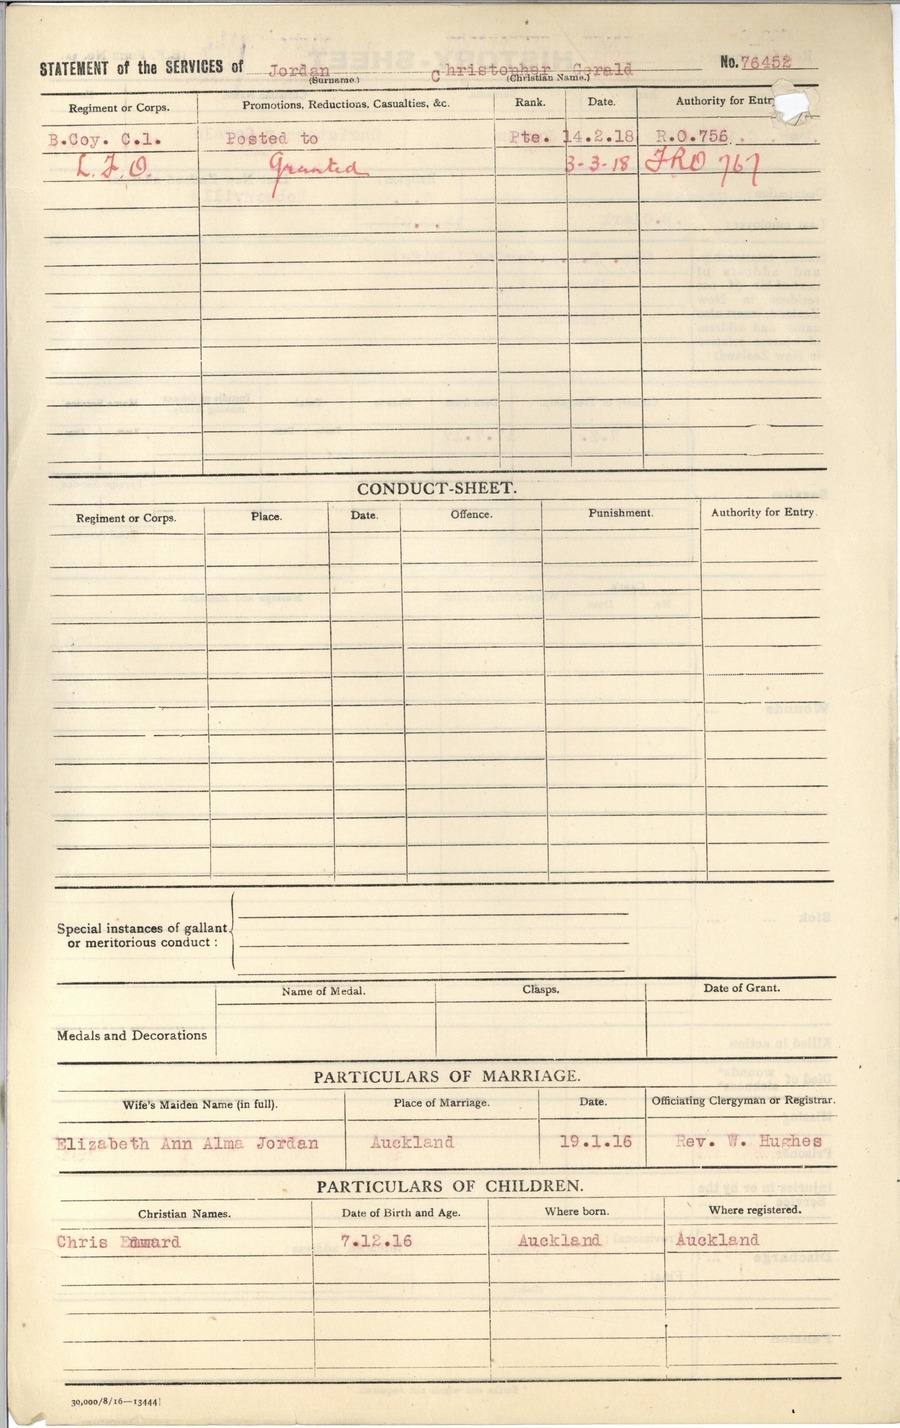 STATEMENT of the SERVICES of Jordan Christopher Gerald No. 76452
(Surname.) (Christian Name.)
Regiment or Corps. Promotions, Reductions, Casualties, &c. Rank. Date. Authority for Entry
B.Coy. C.1. Posted to Pte. 14.2.18 R.O.756
L.F.O. Granted 3-3-18 FRO 767
CONDUCT-SHEET.
Regiment or Corps. Place. Date. Offence. Punishment. Authority for Entry.
Special instances of gallant
or meritorious conduct :
Name of Medal. Clasps. Date of Grant.
Medals and Decorations
PARTICULARS OF MARRIAGE.
Wife's Maiden Name (in full). Place of Marriage. Date. Officiating Clergyman or Registrar.
Elizabeth Ann Alma Jordan Auckland 19.1.16 Rev. W. Hughes
PARTICULARS OF CHILDREN.
Christian Names. Date of Birth and Age. Where born. Where registered.
Chris Edward 7.12.16 Auckland Auckland
30,000/8/16—13444]